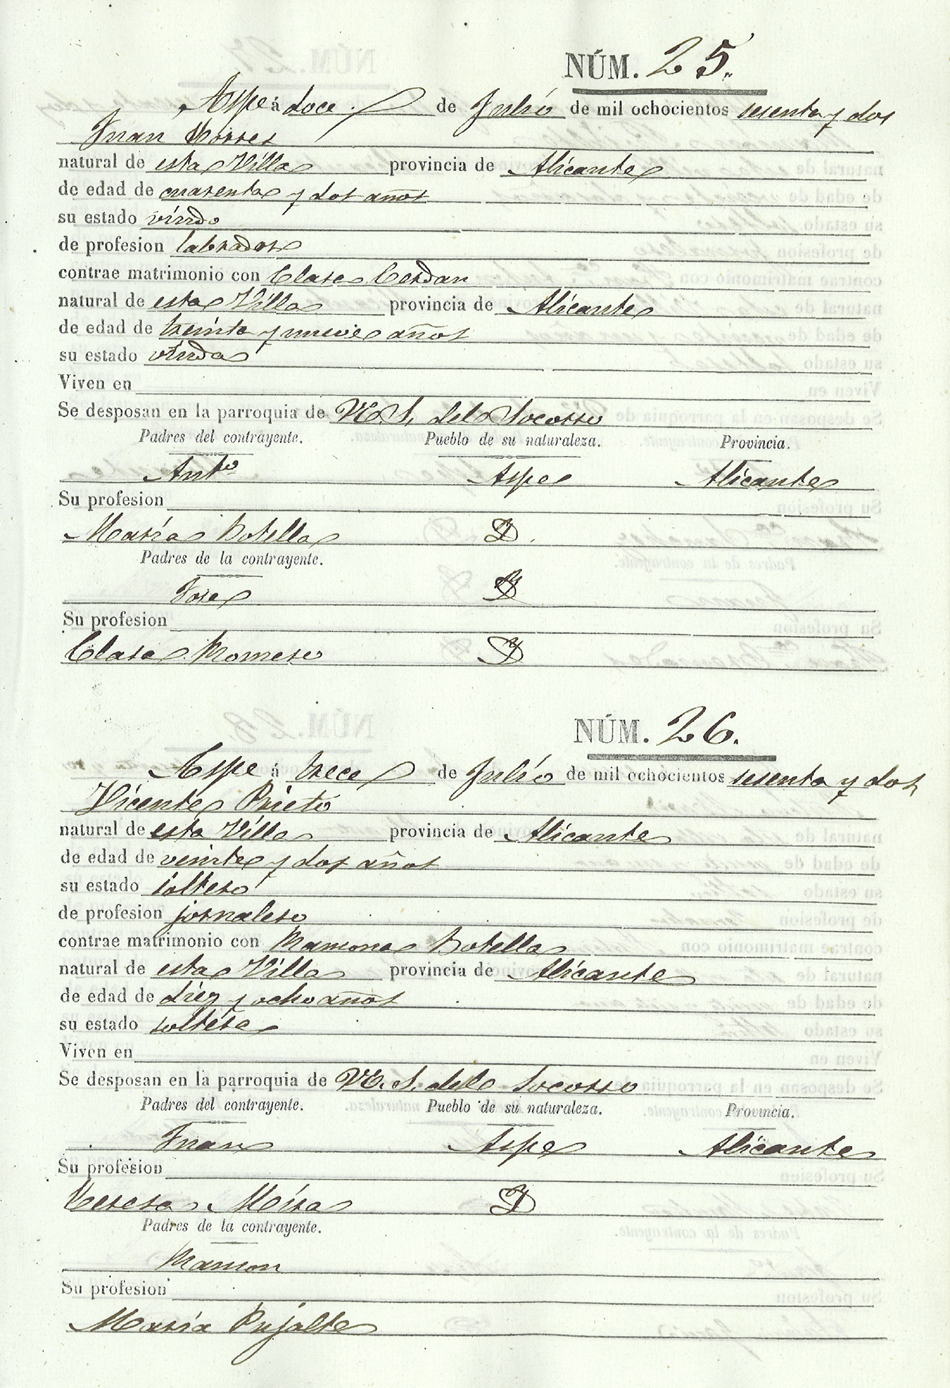 NÚM. 25.
Aspe á doce de Julio de mil ochocientos sesenta y dos
Juan Torres
natural de esta Villa provincia de Alicante
de edad de cuarenta y dos años
su estado viudo
de profesion labrador
contrae matrimonio con Clara Cerdan
natural de esta Villa provincia de Alicante
de edad de treinta y nueve años
su estado viuda
Viven en
Se desposan en la parroquia de N. S. del Socorro
Padres del contrayente. Pueblo de su naturaleza. Provincia.
Antº Aspe Alicante
Su profesion
Maria Botella
Padres de la contrayente.
Jose
Su profesion
Clara Romero
NÚM. 26.
Aspe á trece de Julio de mil ochocientos sesenta y dos
Vicente Prieto
natural de esta Villa provincia de Alicante
de edad de veinte y dos años
su estado soltero
de profesion jornalero
contrae matrimonio con Ramona Botella
natural de esta Villa provincia de Alicante
de edad de diez y ocho años
su estado soltera
Viven en
Se desposan en la parroquia de N. S. del Socorro
Padres del contrayente. Pueblo de su naturaleza. Provincia.
Juan Aspe Alicante
Su profesion
Teresa Mira
Padres de la contrayente.
Ramon
Su profesion
Maria Pujalte